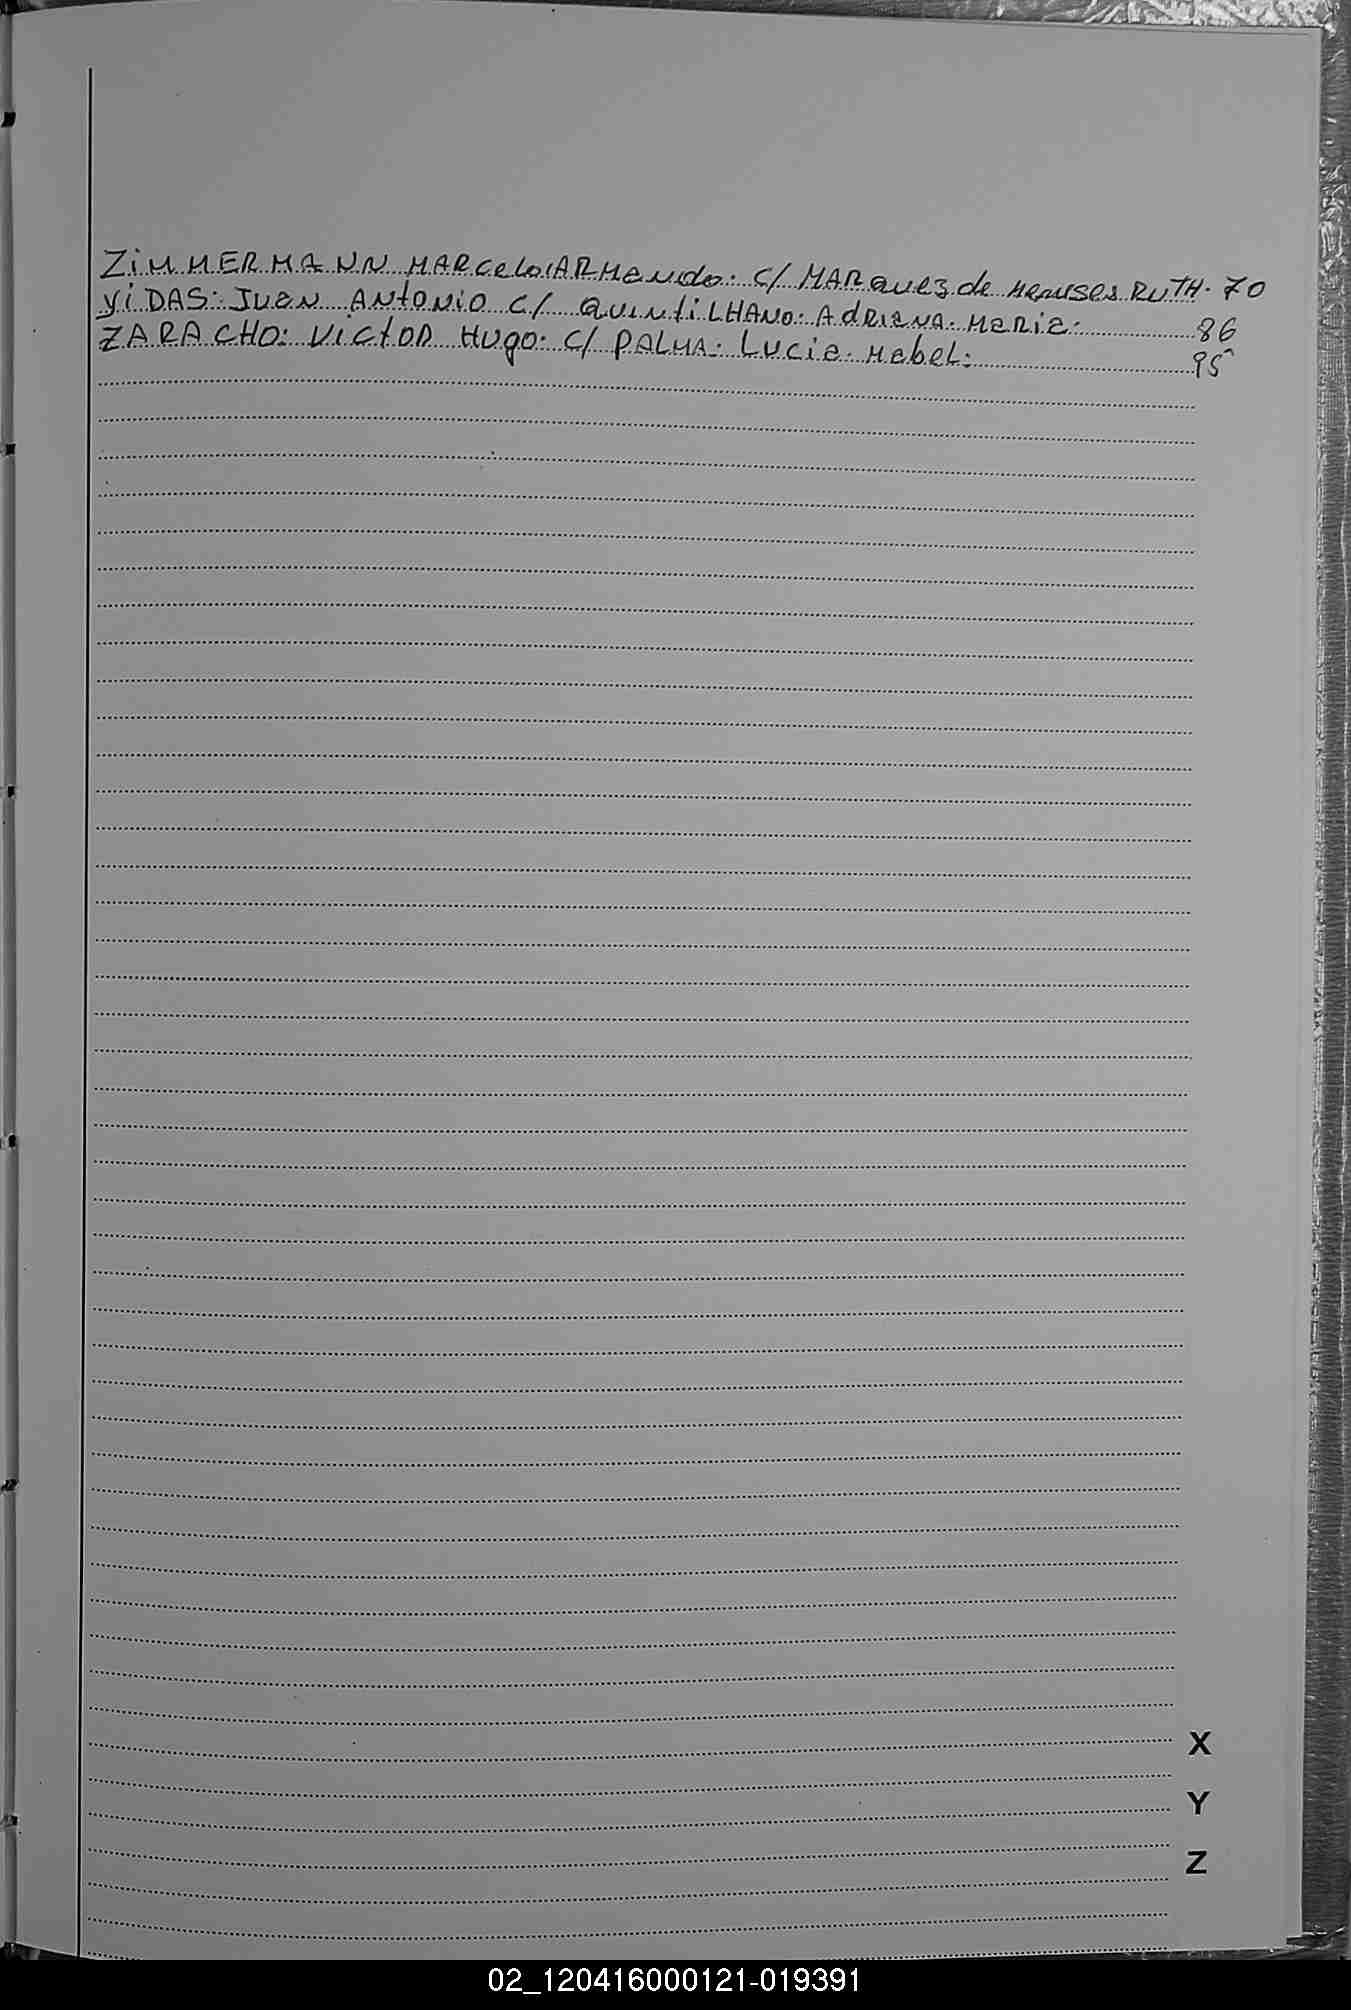 ZiMMERMANN MARCelo ARMando. C/ MARquez de Meneses RUTH. 70
YiDAS: Juan ANtoNio C/ QuintiLHANO. AdRiana. Maria. 86
ZARACHO: VictoR Hugo. C/ PALMA. Lucia. Mabel. 95
X
Y
Z
02_120416000121-019391